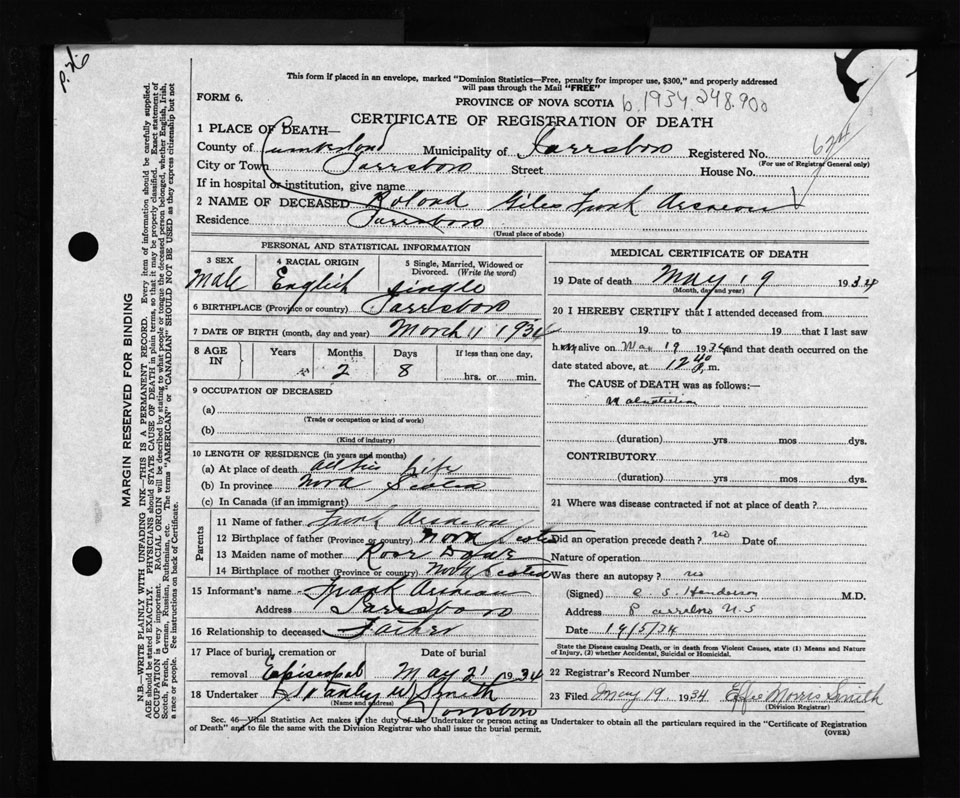 P. 76
This form if placed in an envelope, marked "Dominion Statistics—Free, penalty for improper use, $300," and properly addressed
will pass through the Mail "FREE"
FORM 6.
PROVINCE OF NOVA SCOTIA b.1934.248.900
CERTIFICATE OF REGISTRATION OF DEATH
1 PLACE OF DEATH—
County of Cumberland Municipality of Parrsboro Registered No. 624
(For use of Registrar General only)
City or Town Parrsboro Street House No.
If in hospital or institution, give name
2 NAME OF DECEASED Roland Giles Frank
Residence Parrsboro
(Usual place of abode)
PERSONAL AND STATISTICAL INFORMATION
3 SEX Male
4 RACIAL ORIGIN English
5 Single, Married, Widowed or Divorced. (Write the word) single
6 BIRTHPLACE (Province or country) Parrsboro
7 DATE OF BIRTH (month, day and year) March 11 1934
8 AGE IN Years Months 2 Days 8 If less than one day, hrs. or min.
9 OCCUPATION OF DECEASED
(a)
(Trade or occupation or kind of work)
(b)
(Kind of industry)
10 LENGTH OF RESIDENCE (in years and months)
(a) At place of death all his Life
(b) In province Nova Scotia
(c) In Canada (if an immigrant)
Parents
11 Name of father Frank
12 Birthplace of father (Province or country) Nova Scotia
13 Maiden name of mother Rose
14 Birthplace of mother (Province or country) Nova Scotia
15 Informant's name Frank
Address Parrsboro
16 Relationship to deceased Father
17 Place of burial, cremation or removal Episcopal Date of burial May 21 1934
18 Undertaker Stanley W Smith
(Name and address)
Parrsboro
MEDICAL CERTIFICATE OF DEATH
19 Date of death May 19 1934
(Month, day and year)
20 I HEREBY CERTIFY that I attended deceased from
19 to 19 that I last saw
him alive on May 19 1934 and that death occurred on the
date stated above, at 12 40 P.m.
The CAUSE of DEATH was as follows:—
Malnutrition
(duration) yrs mos dys.
CONTRIBUTORY
(duration) yrs mos dys.
21 Where was disease contracted if not at place of death?
Did an operation precede death? no Date of
Nature of operation
Was there an autopsy? no
(Signed) C. S. Henderson M.D.
Address Parrsboro N.S
Date 19/5/34
State the Disease causing Death, or in death from Violent Causes, state (1) Means and
Nature of Injury, (2) whether Accidental, Suicidal or Homicidal.
22 Registrar's Record Number
23 Filed May 19 1934 Effie Morris Smith
(Division Registrar)
Sec. 46—Vital Statistics Act makes it the duty of the Undertaker or person acting as Undertaker to obtain all the particulars required in the "Certificate of Registration
of Death" and to file the same with the Division Registrar who shall issue the burial permit.
(OVER)
MARGIN RESERVED FOR BINDING
N.B.—WRITE PLAINLY WITH UNFADING INK—THIS IS A PERMANENT RECORD. Every item of information should be carefully supplied.
AGE should be stated EXACTLY. PHYSICIANS should STATE CAUSE OF DEATH in plain terms, so that it may be properly classified. Exact statement of
OCCUPATION is very important. RACIAL ORIGIN will be described by stating to what people or tongue the deceased person belonged, whether English, Irish,
Scotch, French, German, Russian, Ruthenian, etc. The terms "AMERICAN" or "CANADIAN" SHOULD NOT BE USED as they express citizenship but not
a race or people. See instructions on back of Certificate.